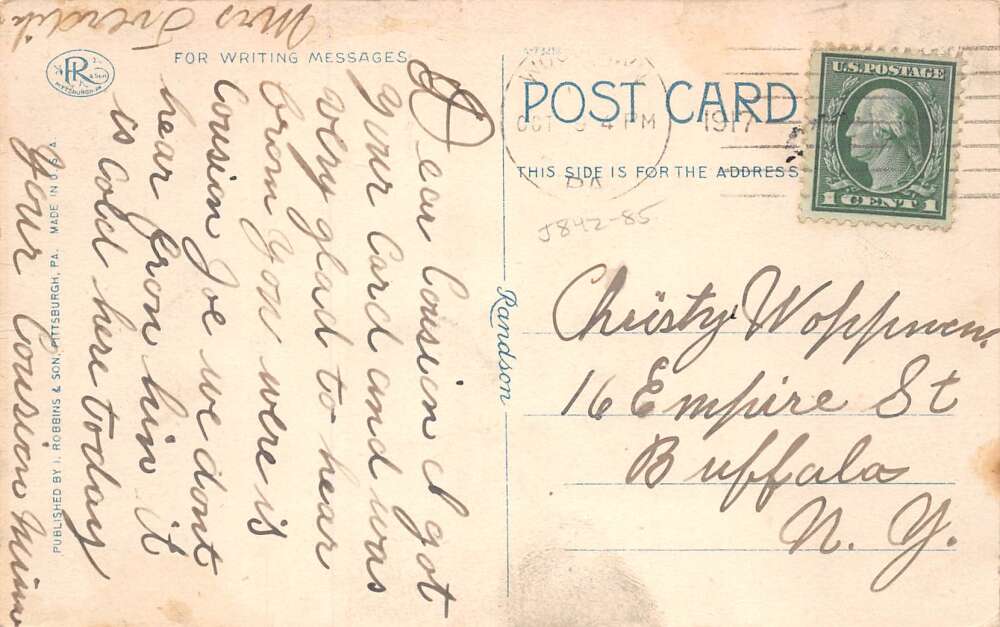 FOR WRITING MESSAGES
POST CARD
THIS SIDE IS FOR THE ADDRESS
U.S. POSTAGE
1 CENT 1
OCT 4 PM 1917
PA
J842-85
Dear Cousien I got
your Card and was
very glad to hear
from you were is
Cousien Joe we dont
hear fron him it
is Cold here today
your Cousien
Mrs
Christy Woppmen
16 Empire St
Buffalo
N. Y.
Randson
PUBLISHED BY I. ROBBINS & SON, PITTSBURGH, PA. MADE IN U.S.A.
IR & SON
PITTSBURGH, PA.